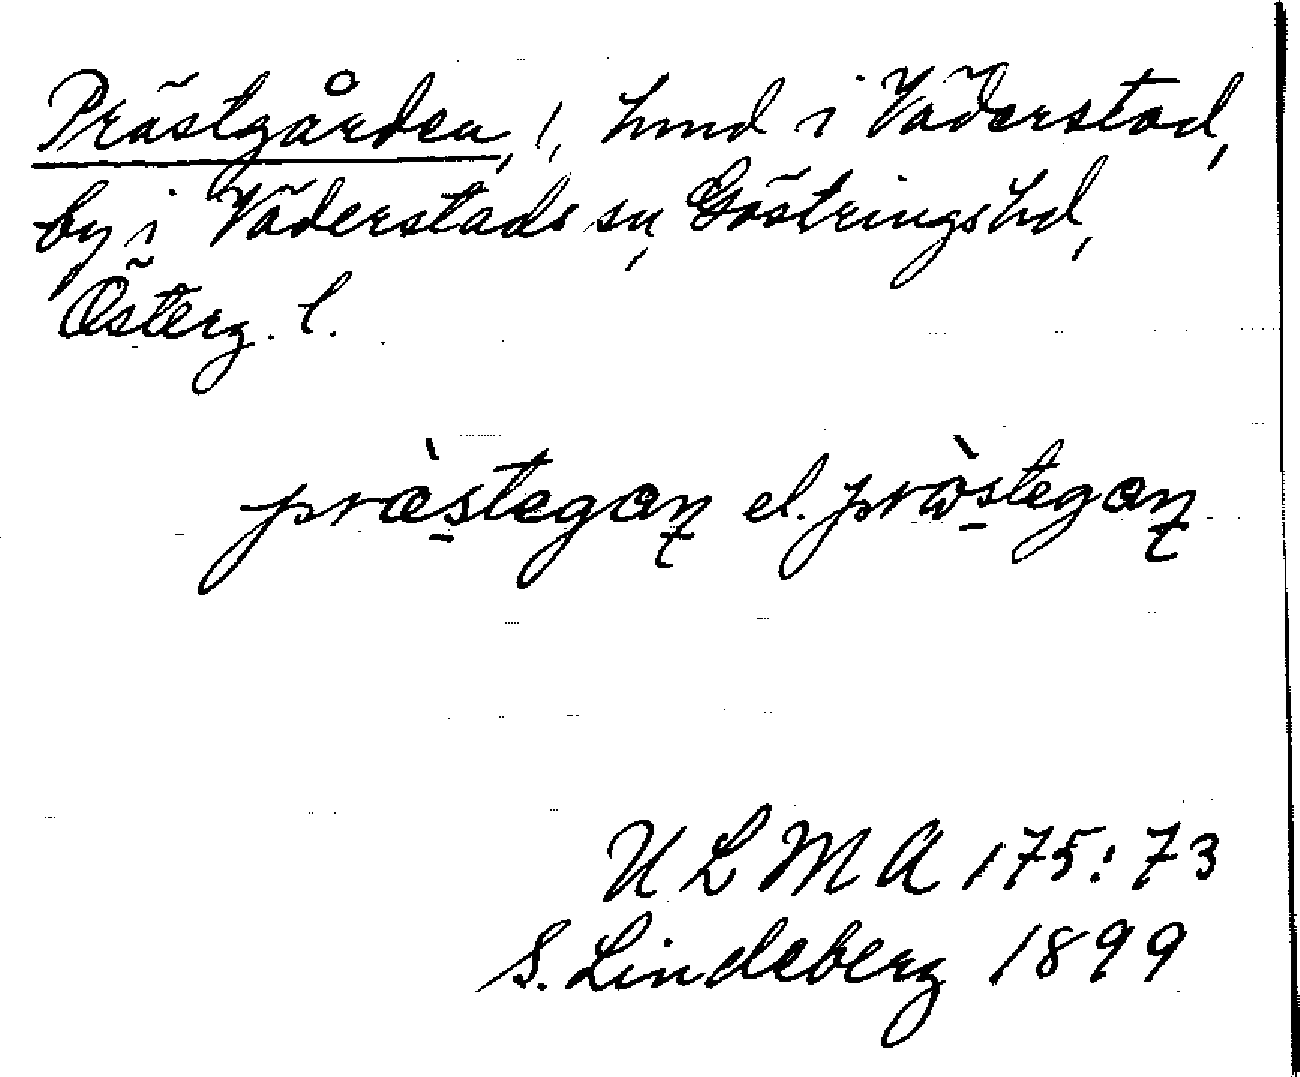 Prästgården, 1, hmd i Väderstad,
by i Väderstads sn, Göstrings hd,
Österg. l.
præ̀stegaɳ el. prὼstegaɳ
ULMA 175:73
S. Lindeberg 1899